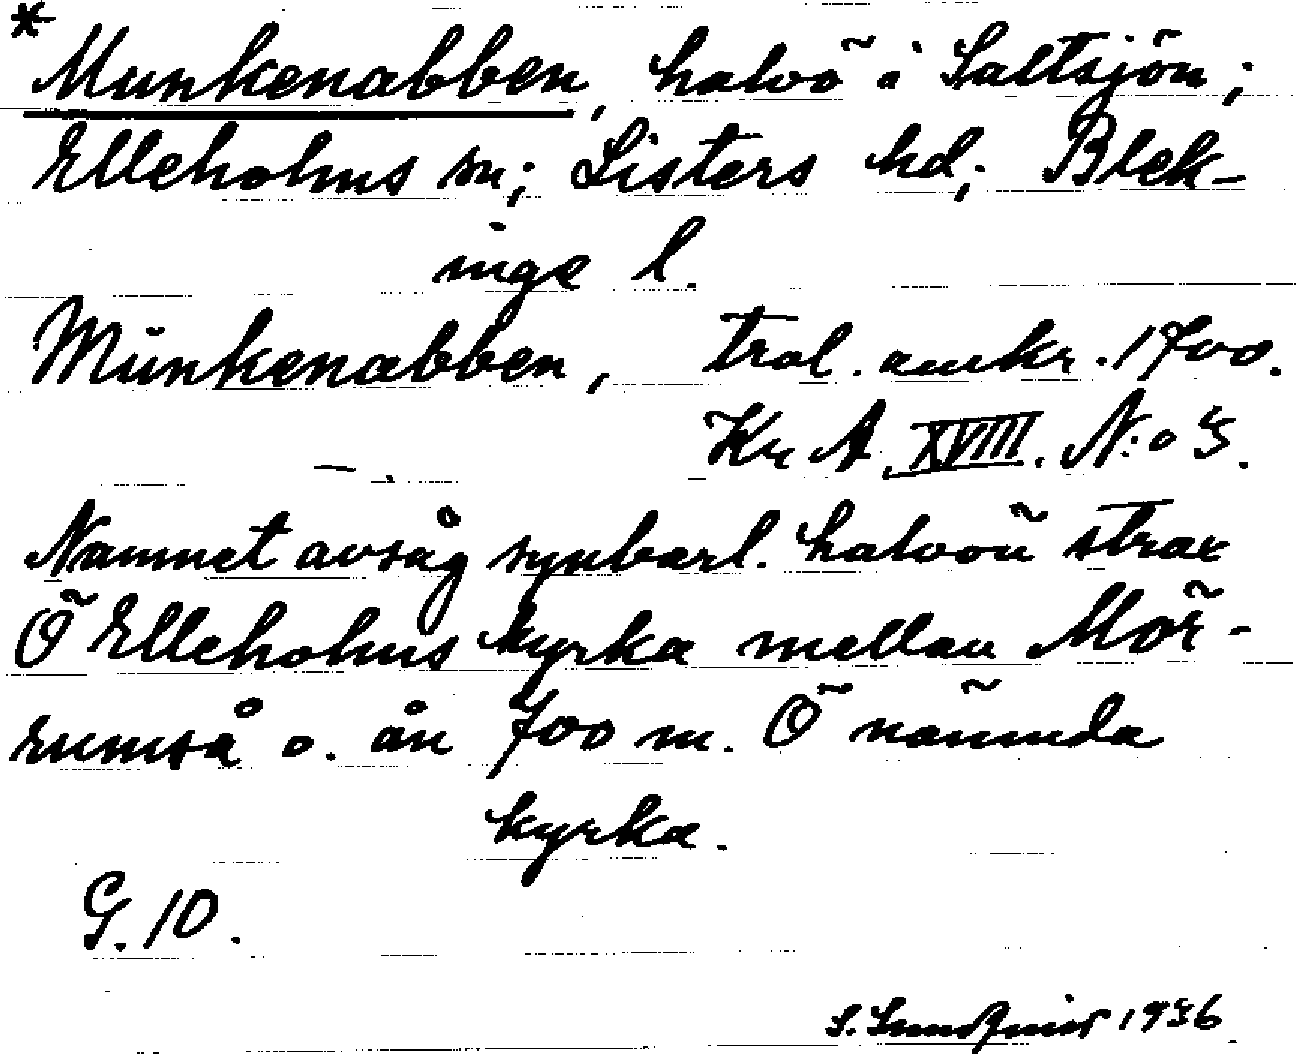 * Munkenabben, halvö i Saltsjön;
Elleholms sn; Listers hd; Blek-
inge l.
Munkenabben, trol. omkr. 1700.
Kr A XVIII. N:o 3.
— .
Namnet avsåg synbarl. halvön strax
Ö Elleholms kyrka mellan Mör-
rumså o. ån 700 m. Ö nämnda
kyrka.
G. 10.
1936